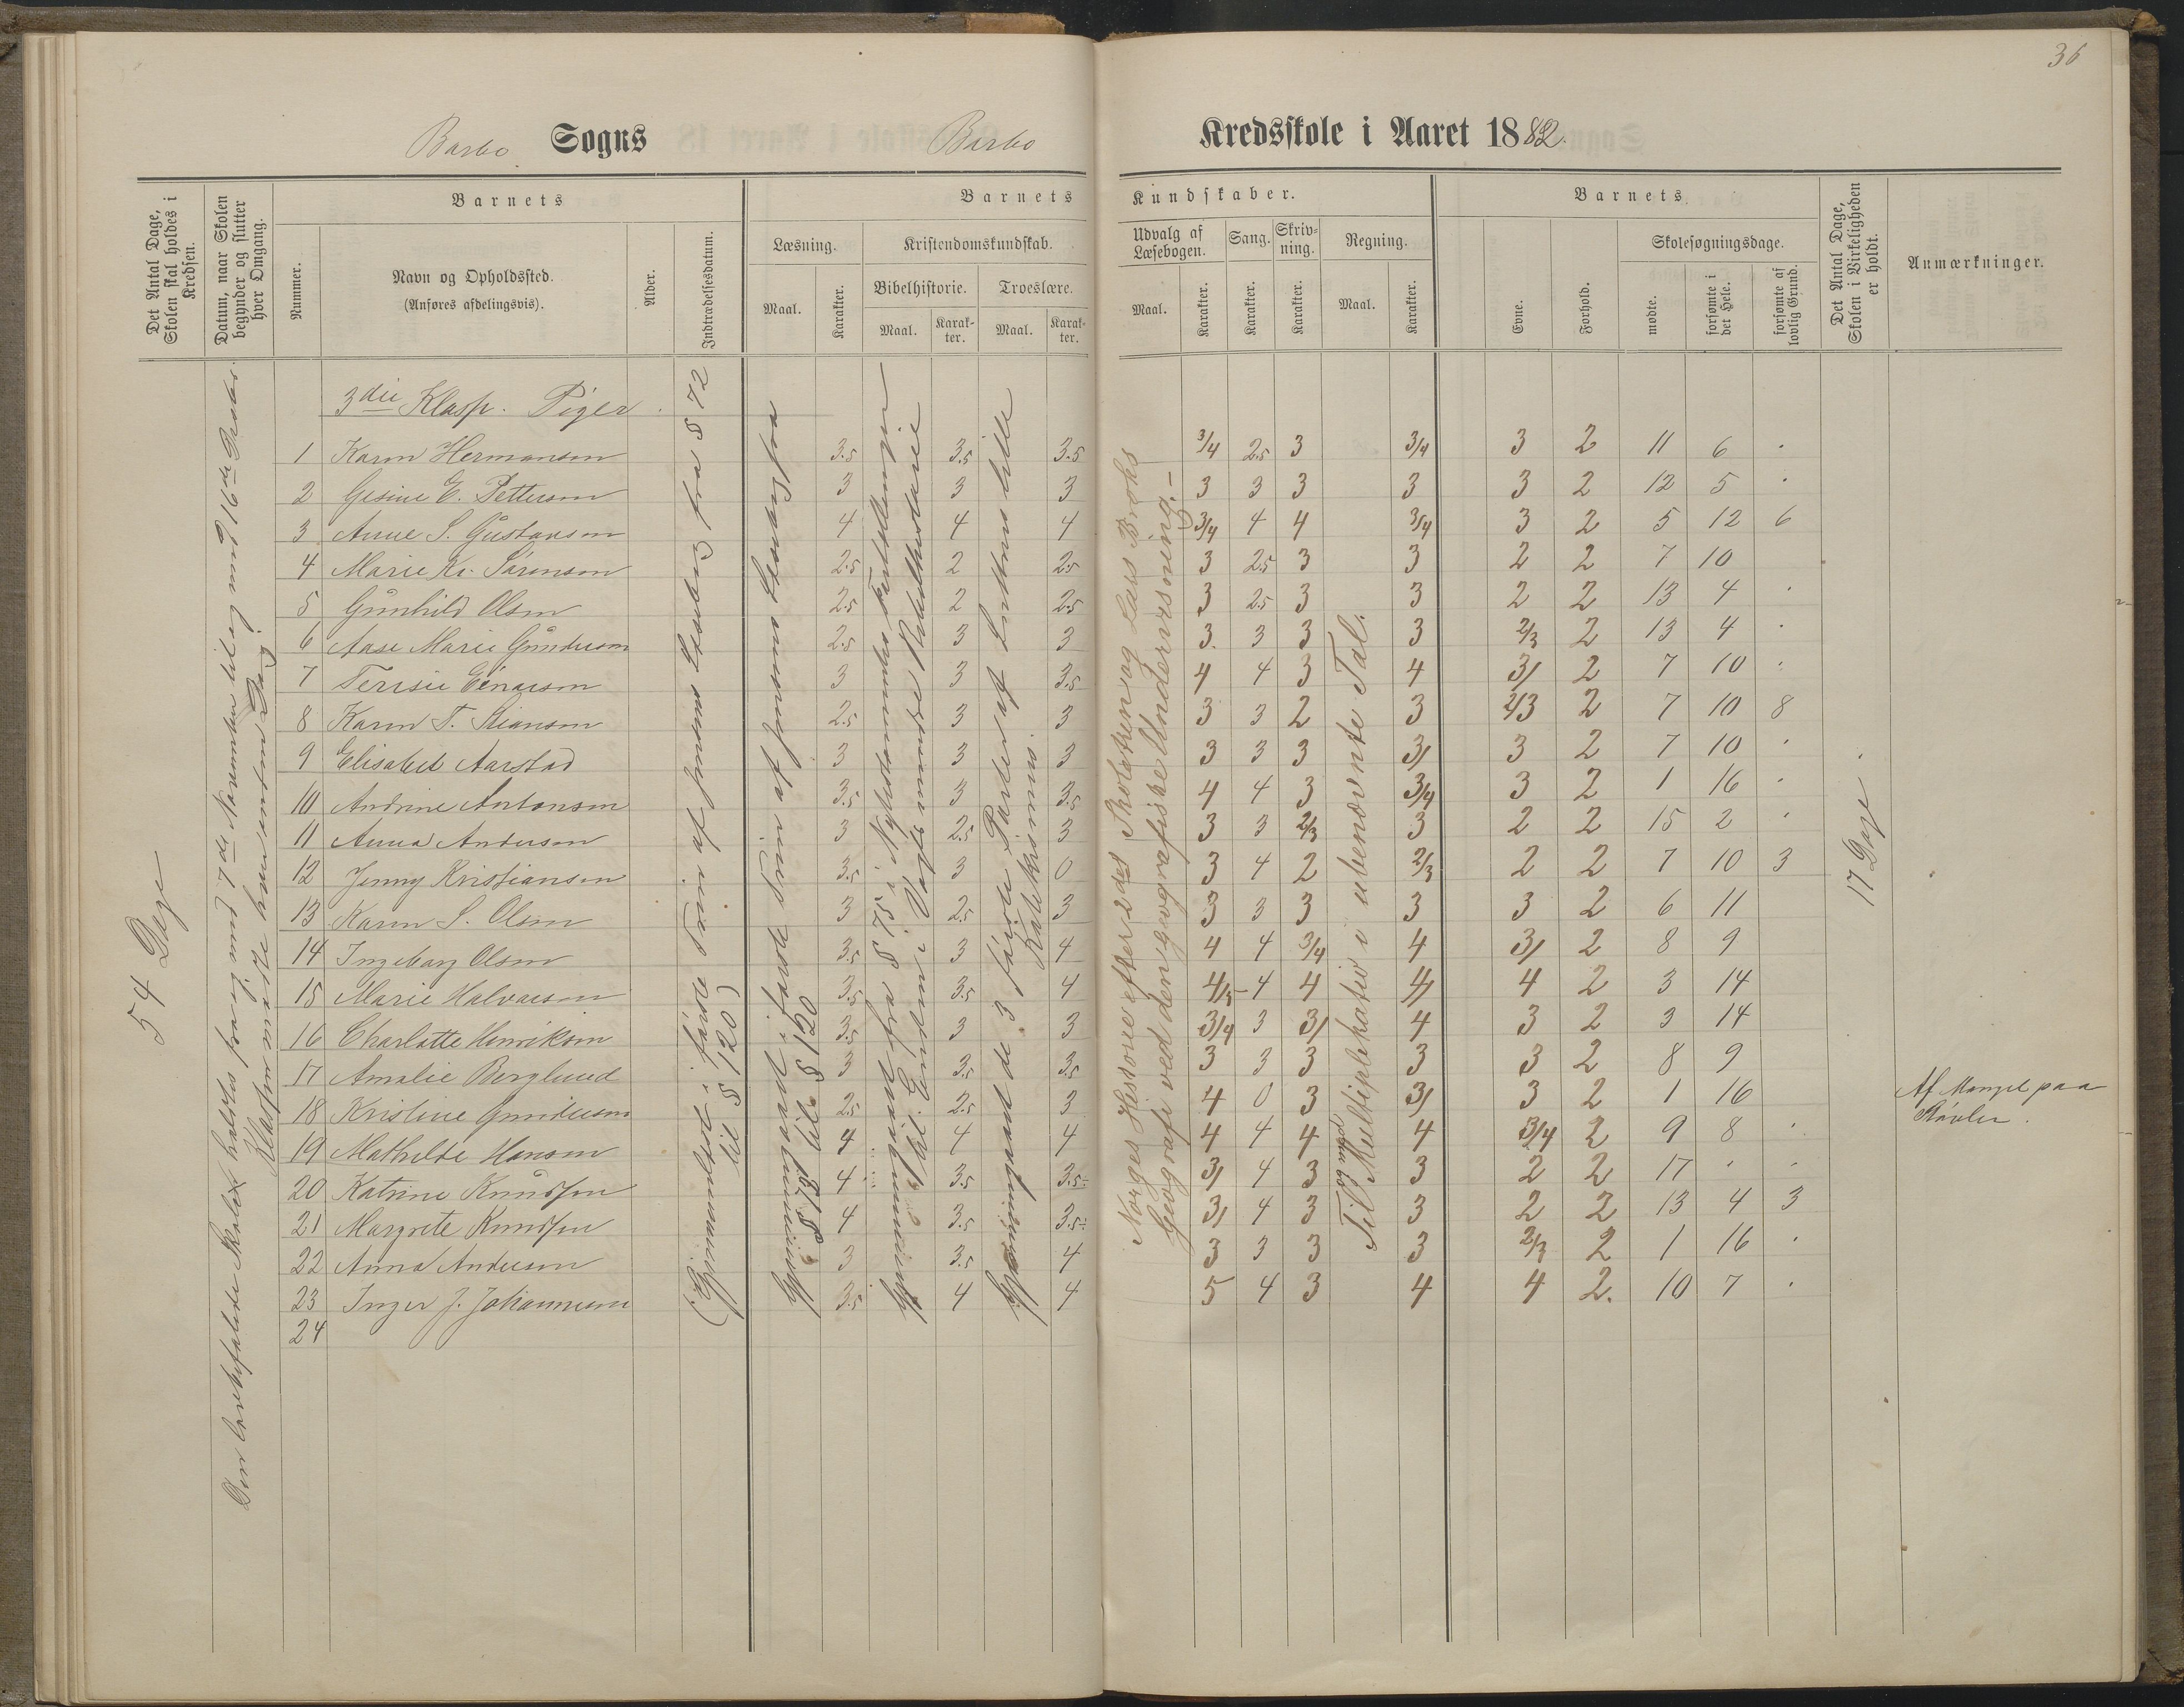 36
Barbo Sogns Barbo Kredsskole i Aaret 1882.
Det Antal Dage, Skolen skal holdes i Kredsen.
Datum, naar Skolen begynder og slutter hver Omgang.
Barnets
Nummer.
Navn og Opholdssted.
(Anføres afdelingsvis).
Alder.
Indtrædelsesdatum.
Barnets Kundskaber.
Læsning.
Maal.
Karakter.
Kristendomskundskab.
Bibelhistorie.
Maal.
Karakter.
Troeslære.
Maal.
Karakter.
Udvalg af Læsebogen.
Maal.
Karakter.
Sang.
Karakter.
Skrivning.
Karakter.
Regning.
Maal.
Karakter.
Barnets
Evne.
Forhold.
Skolesøgningsdage.
mødte.
forsømte i det Hele.
forsømte af lovlig Grund.
Det Antal Dage, Skolen i Virkeligheden er holdt.
Anmærkninger.
54 Dage
Den Skole holdtes fra og med 7de November til og med 16de
Klassen mødte hver anden Dag
3die Klasse. Piger.
1 Karen Hermansen 3.5 3.5 3.5 3/4 2.5 3 3/4 3 2 11 6 .
2 Gesine E. Pettersen 3 3 3 3 3 3 3 3 2 12 5 .
3 Anne S. Gustavsen 4 4 4 3/4 4 4 3/4 3 2 5 12 6
4 Marie Kr. Sørensen 2.5 2 2.5 3 2.5 3 3 2 2 7 10
5 Gunhild Olsen 2.5 2 2.5 3 2.5 3 3 2 2 13 4 .
6 Aase Marie Gundersen 2.5 3 3 3. 3 3 3 2/3 2 13 4 .
7 Terese Einarsen 3 3 3.5 4 4 3 4 3/ 2 7 10 .
8 Karen T. Stiansen 2.5 3 3 3 3 2 3 2/3 2 7 10 8
9 Elisabet Aarstad 3 3 3 3 3 3 3/ 3 2 7 10 .
10 Andrine Antonsen 3.5 3 3.5 4 4 3 3/4 3 2 1 16 .
11 Anna Andersen 3 2.5 3 3 3 2/3 3 2 2 15 2 .
12 Jenny Kristiansen 3.5 3 0 3 4 2 2/3 2 2 7 10 3
13 Karen S. Olsen 3 2.5 3 3 3 3 3 3 2 6 11
14 Ingeborg Olsen 3.5 3 4 4 4 3/4 4 3/ 2 8 9
15 Marie Halvorsen 3.5 3.5 4 4/3 - 4 4 4/ 4 2 3 14
16 Charlotte Henriksen 3.5 3 3 3/4 3 3/ 4 3 2 3 14
17 Amalie Berglund 3 3.5 3.5 3 3 3 3 3 2 8 9
18 Kristine Gundersen 2.5 2.5 3 4 0 3 3/ 3 2 1 16 Af Mangel paa Støvler.
19 Mathilde Hansen 4 4 4 4 4 4 4 3/4 2 9 8 .
20 Katrine Knudsen 4 3.5 3.5 3/ 4 3 3 2 2 17 . .
21 Margrete Knudsen 4 3.5 3.5 3/ 4 3 3 2 2 13 4 3
22 Anna Andersen 3 3.5 4 3 3 3 3 2/3 2 1 16 .
23 Inger J. Johannesen 3.5 4 4 5 4 3 4 4 2. 10 7 .
24
(Gjennemløbet i første Trin af Jensens Læsebog fra § 72
til § 120)
§ 78 til § 120
Gjennemgaaet de 3 første Parter af
Katekismus.
Norges Historie efter 2det Skoletrin og Lars Brøks
Geografi ved den geografiske Undervisning. –
Til Multiplikation i ubenævnte Tal.
17 Dage